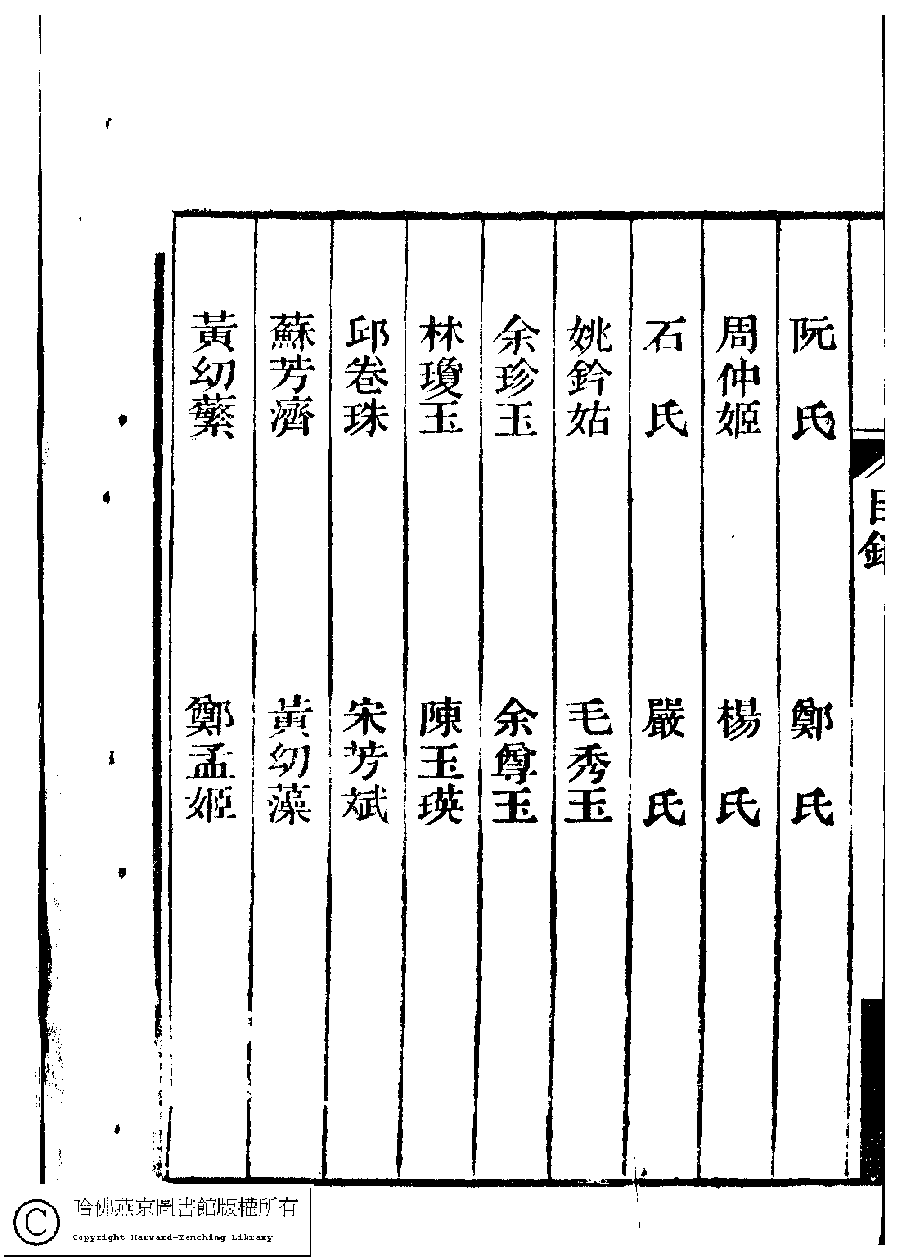 目錄
阮氏　鄭氏
周仲姬　楊氏
石氏　嚴氏
姚鈐姑　毛秀玉
余珍玉　余尊玉
林瓊玉　陳玉瑛
邱卷珠　宋芳斌
蘇芳濟　黃幼藻
黃幼蘩　鄭孟姬
哈佛燕京圖書館版權所有
Copyright Harvard-Yenching Library